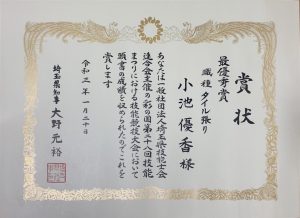 賞状
最優秀賞
職種 タイル張り
小池優香様
あなたは一般社団法人埼玉県技能士会
連合会主催の彩の国第二十八回技能
まつりにおける技能競技大会において
頭書の成績を収められたのでこれを
賞します
令和三年一月二十日
埼玉県知事 大野元裕